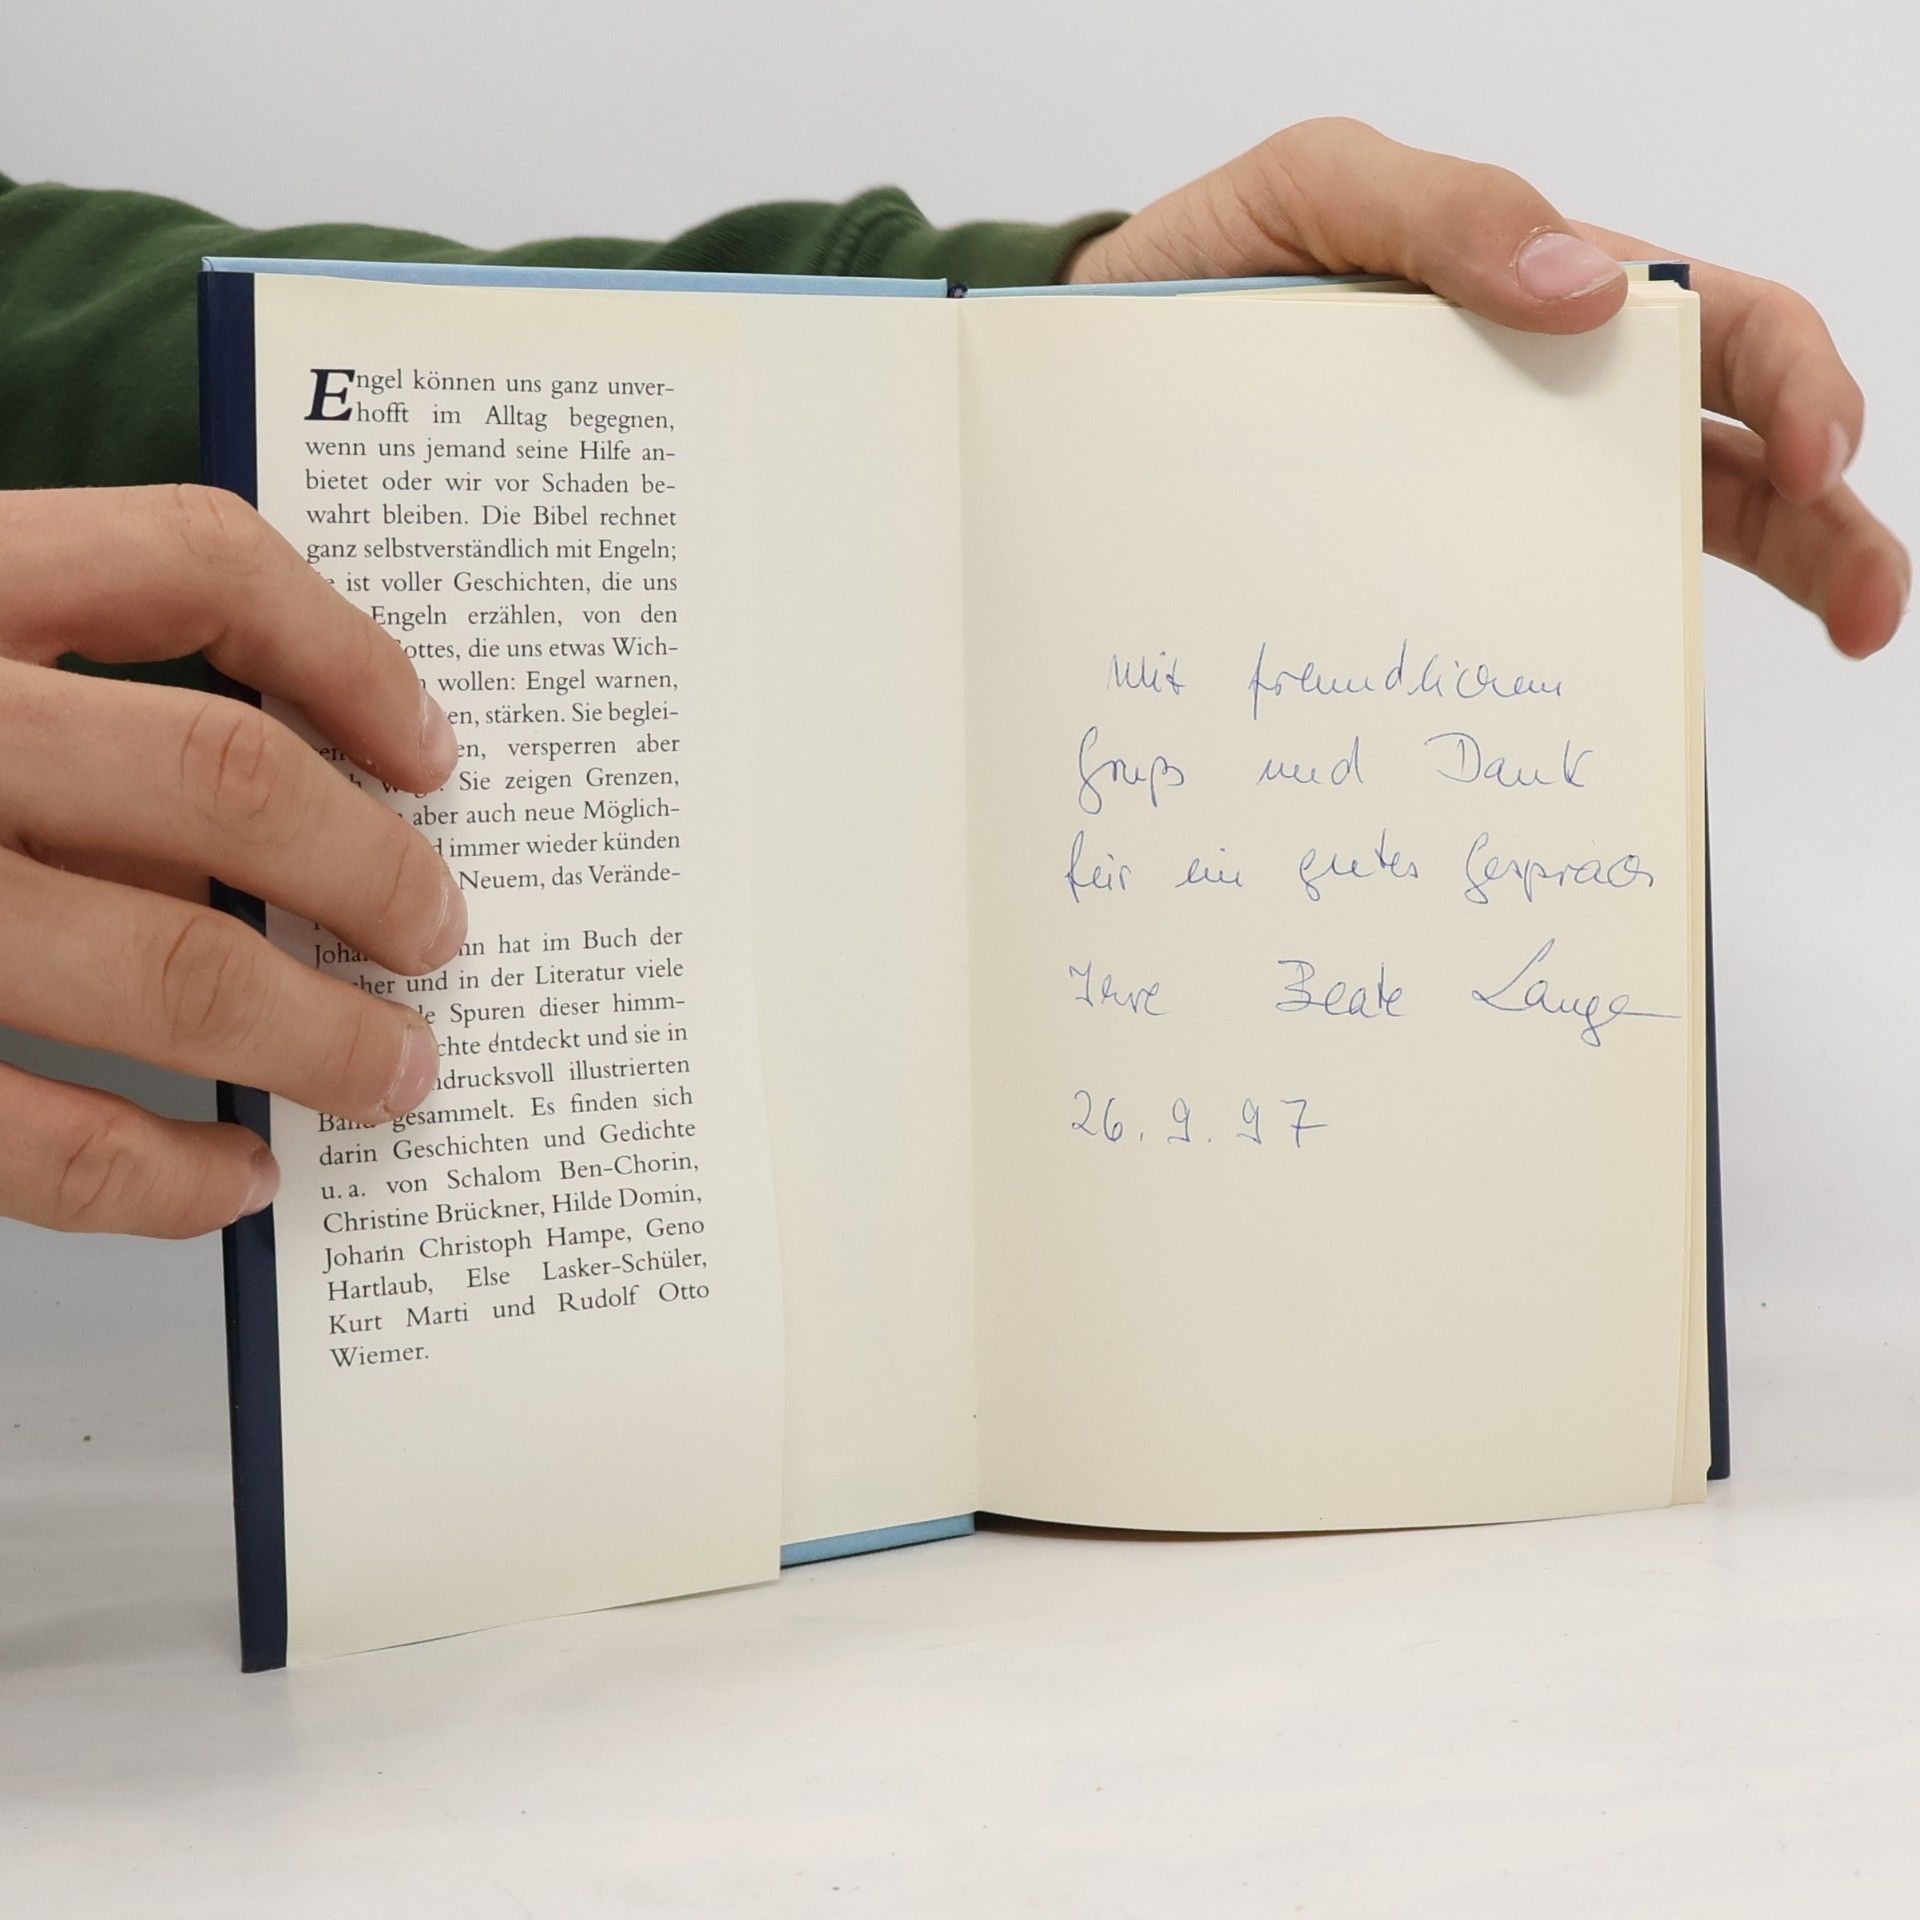 Engel können uns ganz unver-
hofft im Alltag begegnen,
wenn uns jemand seine Hilfe an-
bietet oder wir vor Schaden be-
wahrt bleiben. Die Bibel rechnet
ganz selbstverständlich mit Engeln;
ist voller Geschichten, die uns
Engeln erzählen, von den
die uns etwas Wich-
wollen: Engel warnen,
stärken. Sie beglei-
versperren aber
Sie zeigen Grenzen,
aber auch neue Möglich-
immer wieder künden
Neuem, das Verände-
hat im Buch der
und in der Literatur viele
Spuren dieser himm-
entdeckt und sie in
illustrierten
gesammelt. Es finden sich
darin Geschichten und Gedichte
u. a. von Schalom Ben-Chorin,
Christine Brückner, Hilde Domin,
Johann Christoph Hampe, Geno
Hartlaub, Else Lasker-Schüler,
Kurt Marti und Rudolf Otto
Wiemer.
Mit freundlichem
Gruß und Dank
für ein gutes Gespräch
Ihre Beate Lange
26. 9. 97